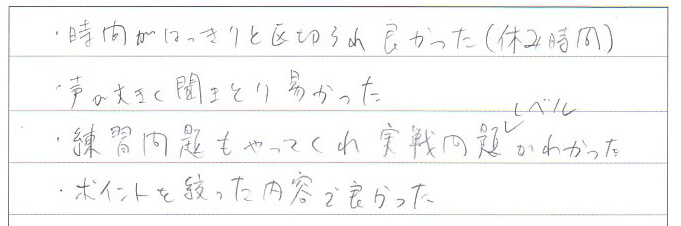 ・時間がはっきりと区切られ良かった(休み時間)
・声が大きく聞きとり易かった
・練習問題もやってくれ実戦問題レベルがわかった
・ポイントを絞った内容で良かった